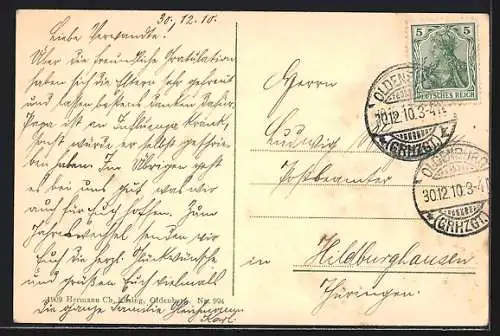 30.12.10.
Liebe Verwandte!
Über die freundliche Gratulation
haben sich die Eltern sehr gefreut
und lassen bestens danken dafür.
Papa ist an Influenza krank,
sonst würde er selbst geschrie-
ben haben. Im Übrigen geht
es bei uns gut, was wir
auch für Euch hoffen. Zum
Jahreswechsel senden wir
Euch die herzl. Glückwünsche
und grüßen Euch vielmals
die ganze Familie
Karl
1909 Hermann Ch. Oldenburg. No. 994
Herrn
Ludwig
Postbeamter
in Hildburghausen
Thüringen.
5 5
DEUTSCHES REICH
OLDENBURG
30.12.10.3-4N
(GRHZGT.)
OLDENBURG
30.12.10.3-4N
(GRHZGT.)